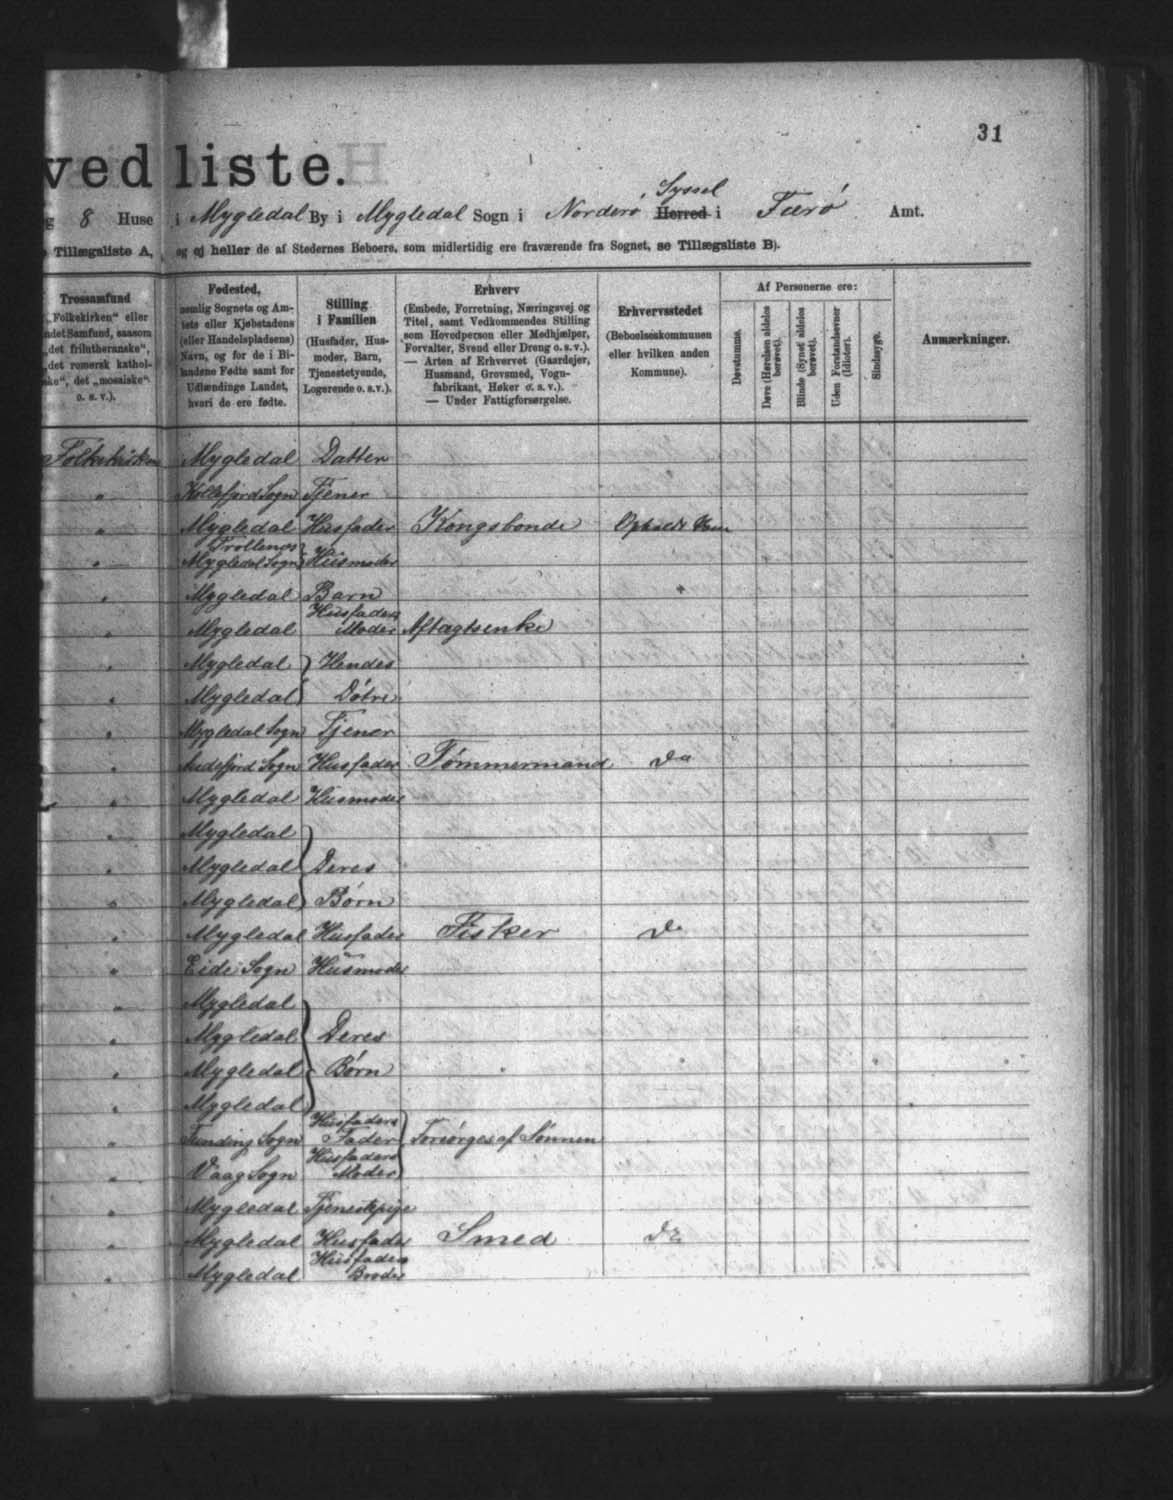 31
ved liste.
g 8 Huse i Mygledal By i Mygledal Sogn i Norderø Syssel Herred i Færø Amt.
Tillægsliste A, og ej heller de af Stedernes Beboere, som midlertidig ere fraværende fra Sognet, se Tillægsliste B).
Trossamfund
(„Folkekirken“ eller
andet Samfund, saasom
„det frilutheranske“,
„det romersk kathol-
ske“, det „mosaiske“
o. s. v.).
Fødested,
nemlig Sognets og Am-
tets eller Kjøbstadens
(eller Handelspladsens)
Navn, og for de i Bi-
landene Fødte samt for
Udlændinge Landet,
hvori de ere fødte.
Stilling
i Familien
(Husfader, Hus-
moder, Barn,
Tjenestetyende,
Logerende o. s. v.).
Erhverv
(Embede, Forretning, Næringsvej og
Titel, samt Vedkommendes Stilling
som Hovedperson eller Medhjælper,
Forvalter, Svend eller Dreng o. s. v.).
— Arten af Erhvervet (Gaardejer,
Husmand, Grovsmed, Vogn-
fabrikant, Høker o. s. v.).
— Under Fattigforsørgelse.
Erhvervsstedet
(Beboelseskommunen
eller hvilken anden
Kommune).
Af Personerne ere:
Døvstumme.
Døve (Hørelsen aldeles
berøvet).
Blinde (Synet aldeles
berøvet).
Uden Forstandsevner
(Idioter).
Sindssyge.
Anmærkninger.
Folkekirken Mygledal Datter
" Kollefjord Sogn Tjener
" Mygledal Husfader Kongsbonde Opholds Kom
" Trollenæs Mygledal Sogn Husmoder
" Mygledal Barn "
" Mygledal Husfaders Moder Aftagtsenke
" Mygledal } Hendes
" Mygledal } Døtre
" Mygledal Sogn Tjener
" Andefjord Sogn Husfader Tømmermand Do
" Mygledal Husmoder
" Mygledal
" Mygledal } Deres
" Mygledal } Børn
" Mygledal Husfader Fisker Do
" Eide Sogn Husmoder
" Mygledal
" Mygledal } Deres
" Mygledal } Børn
" Mygledal
" Funding Sogn Husfaders Fader } Forsørges af Sønnen
" Vaag Sogn Husfaders Moder }
" Mygledal Tjenestepige
" Mygledal Husfader Smed Do
" Mygledal Husfaders Broder